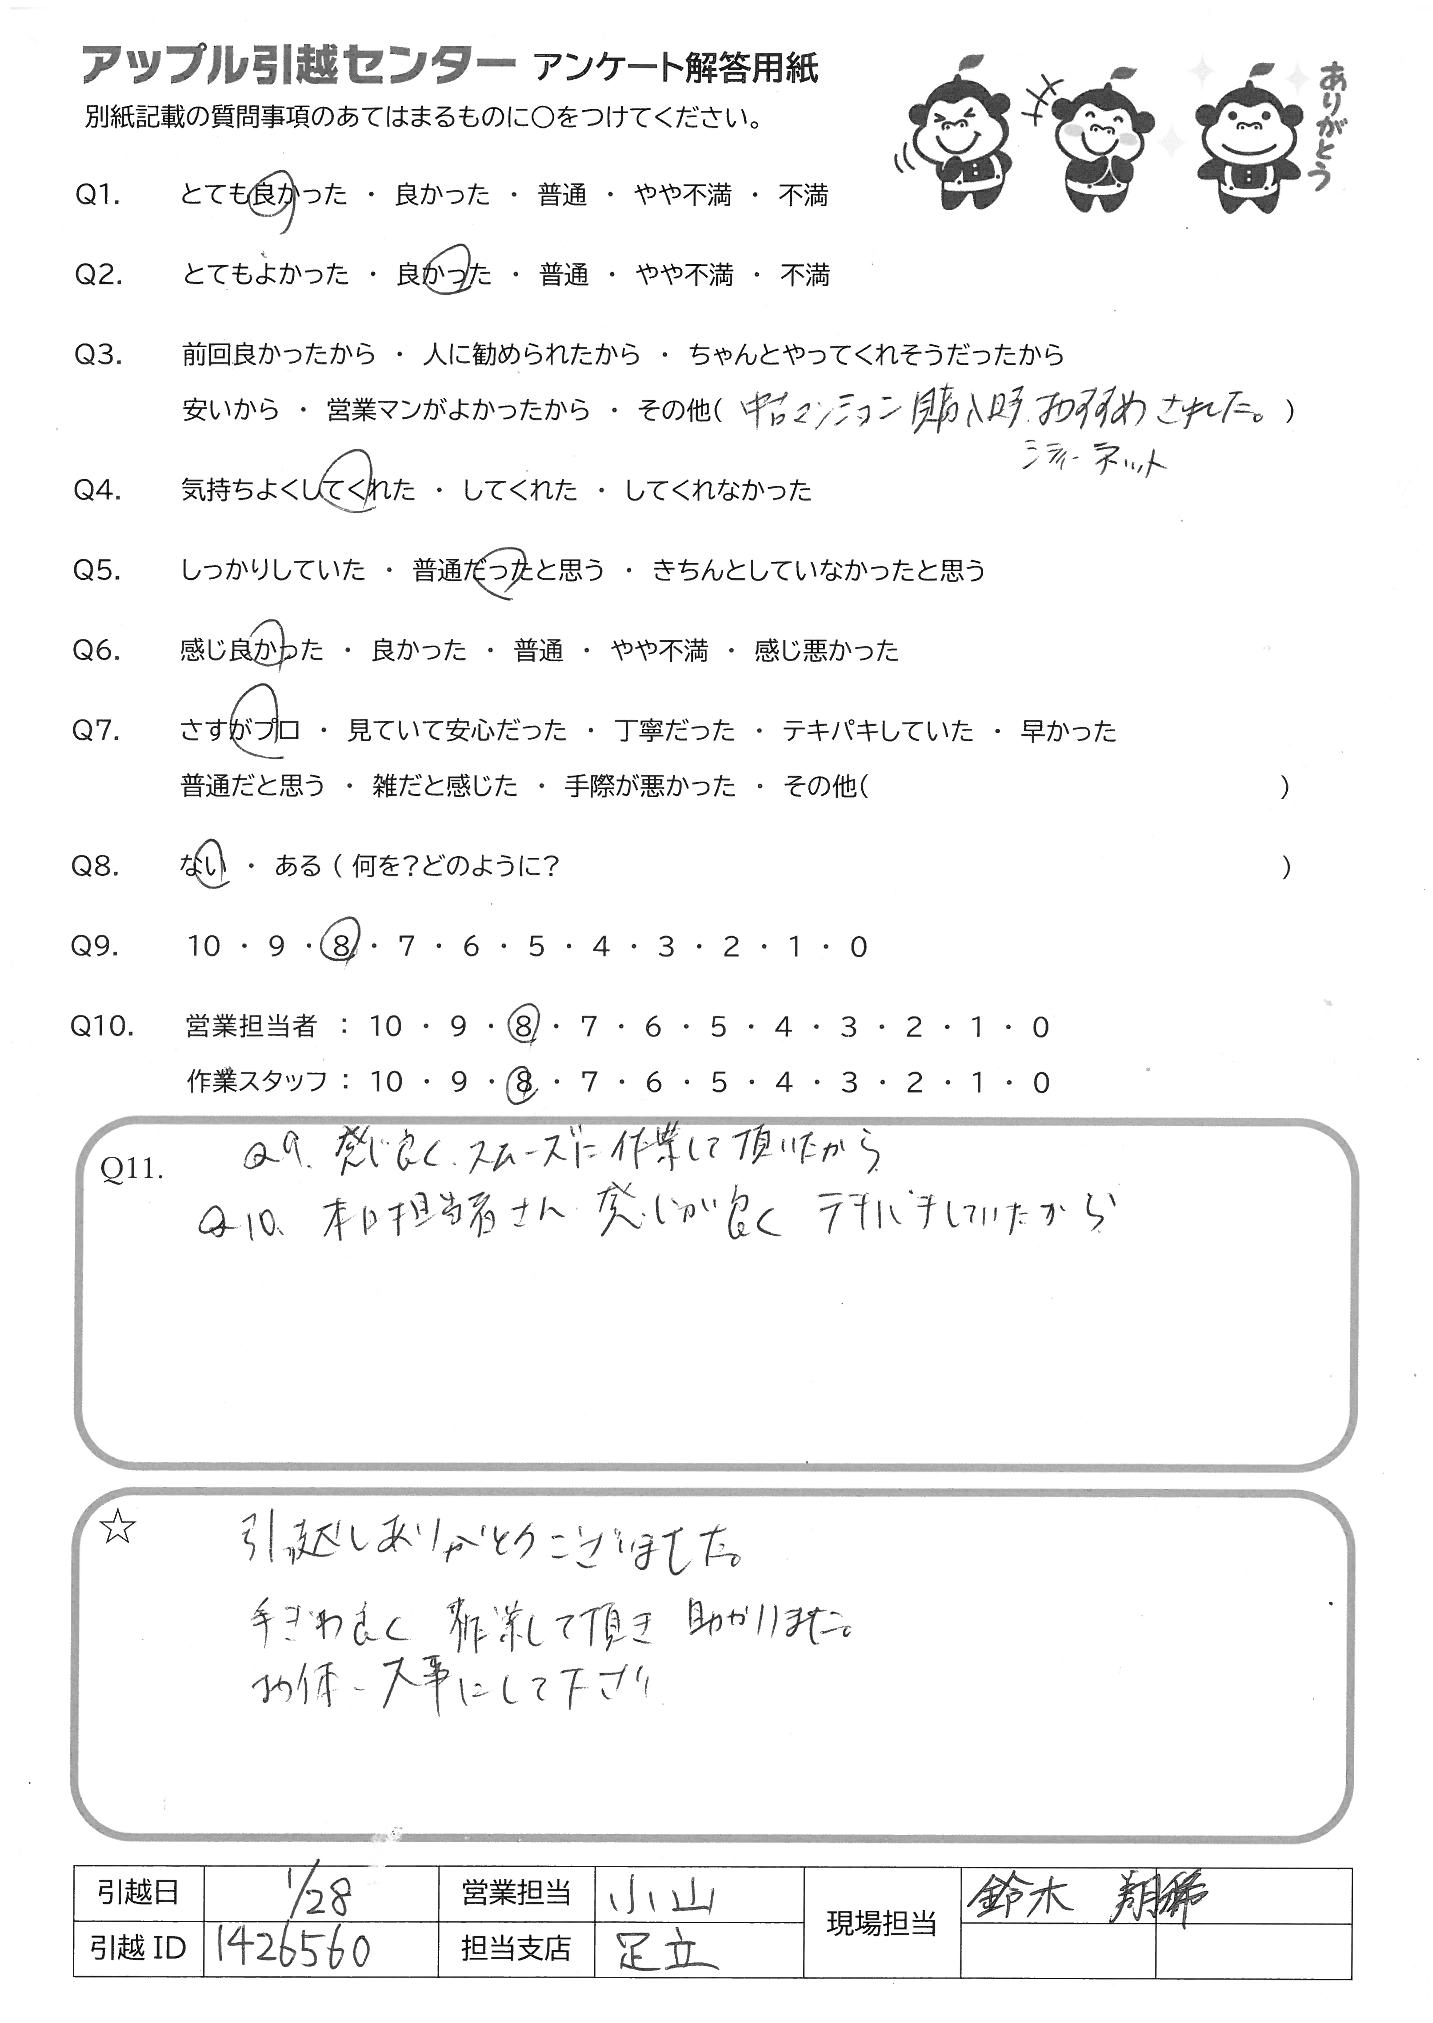 アップル引越センター アンケート解答用紙
別紙記載の質問事項のあてはまるものに○をつけてください。
ありがとう
Q1. とても良かった ・ 良かった ・ 普通 ・ やや不満 ・ 不満
Q2. とてもよかった ・ 良かった ・ 普通 ・ やや不満 ・ 不満
Q3. 前回良かったから ・ 人に勧められたから ・ ちゃんとやってくれそうだったから
安いから ・ 営業マンがよかったから ・ その他( 中古マンション購入時.おすすめされました。 )
シティーネット
Q4. 気持ちよくしてくれた ・ してくれた ・ してくれなかった
Q5. しっかりしていた ・ 普通だったと思う ・ きちんとしていなかったと思う
Q6. 感じ良かった ・ 良かった ・ 普通 ・ やや不満 ・ 感じ悪かった
Q7. さすがプロ ・ 見ていて安心だった ・ 丁寧だった ・ テキパキしていた ・ 早かった
普通だと思う ・ 雑だと感じた ・ 手際が悪かった ・ その他( )
Q8. ない ・ ある ( 何を?どのように? )
Q9. 10 ・ 9 ・ 8 ・ 7 ・ 6 ・ 5 ・ 4 ・ 3 ・ 2 ・ 1 ・ 0
Q10. 営業担当者 : 10 ・ 9 ・ 8 ・ 7 ・ 6 ・ 5 ・ 4 ・ 3 ・ 2 ・ 1 ・ 0
作業スタッフ : 10 ・ 9 ・ 8 ・ 7 ・ 6 ・ 5 ・ 4 ・ 3 ・ 2 ・ 1 ・ 0
Q11. Q9. 感じ良く.スムーズに作業して頂いたから
Q10. 本日担当者さん.感じが良く テキパキしていたから
☆ 引越しありがとうございました。
手ぎわ良く 作業して頂き 助かりました。
お体 大事にして下さい
引越日 1/28 営業担当 小山 現場担当 鈴木 翔稀
引越 ID 1426560 担当支店 足立